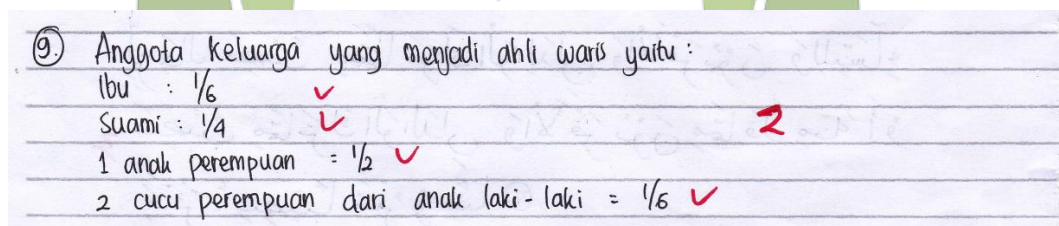 9. Anggota keluarga yang menjadi ahli waris yaitu :
Ibu : 1/6 ✓
Suami : 1/4 ✓ 2
1 anak perempuan = 1/2 ✓
2 cucu perempuan dari anak laki-laki = 1/6 ✓